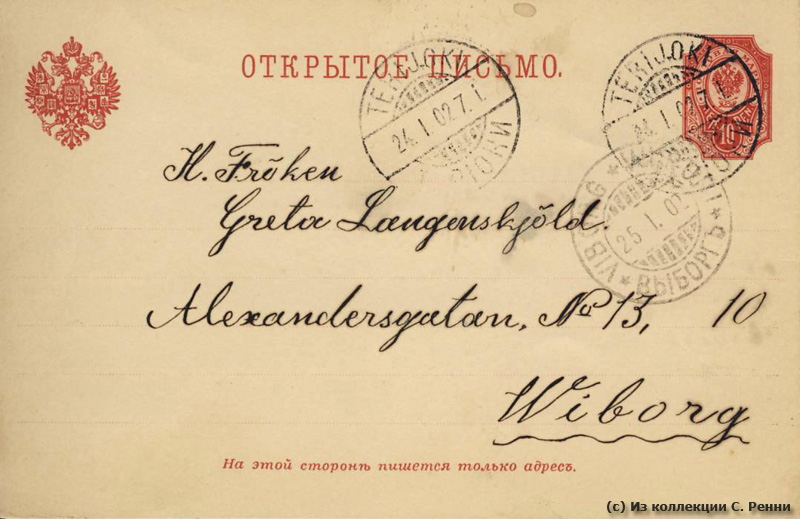 ОТКРЫТОЕ ПИСЬМО.
TERIJOKI
24.I.02.7.I.
TERIJOKI
24.I.02.7.I.
10
H. Fröken
Greta Langenskjöld.
WIBORG * VIIPURI *
25.I.02
ВЫБОРГЪ
Alexandersgatan, No 13, 10
Wiborg
На этой сторонѣ пишется только адресъ.
(c) Из коллекции С. Ренни